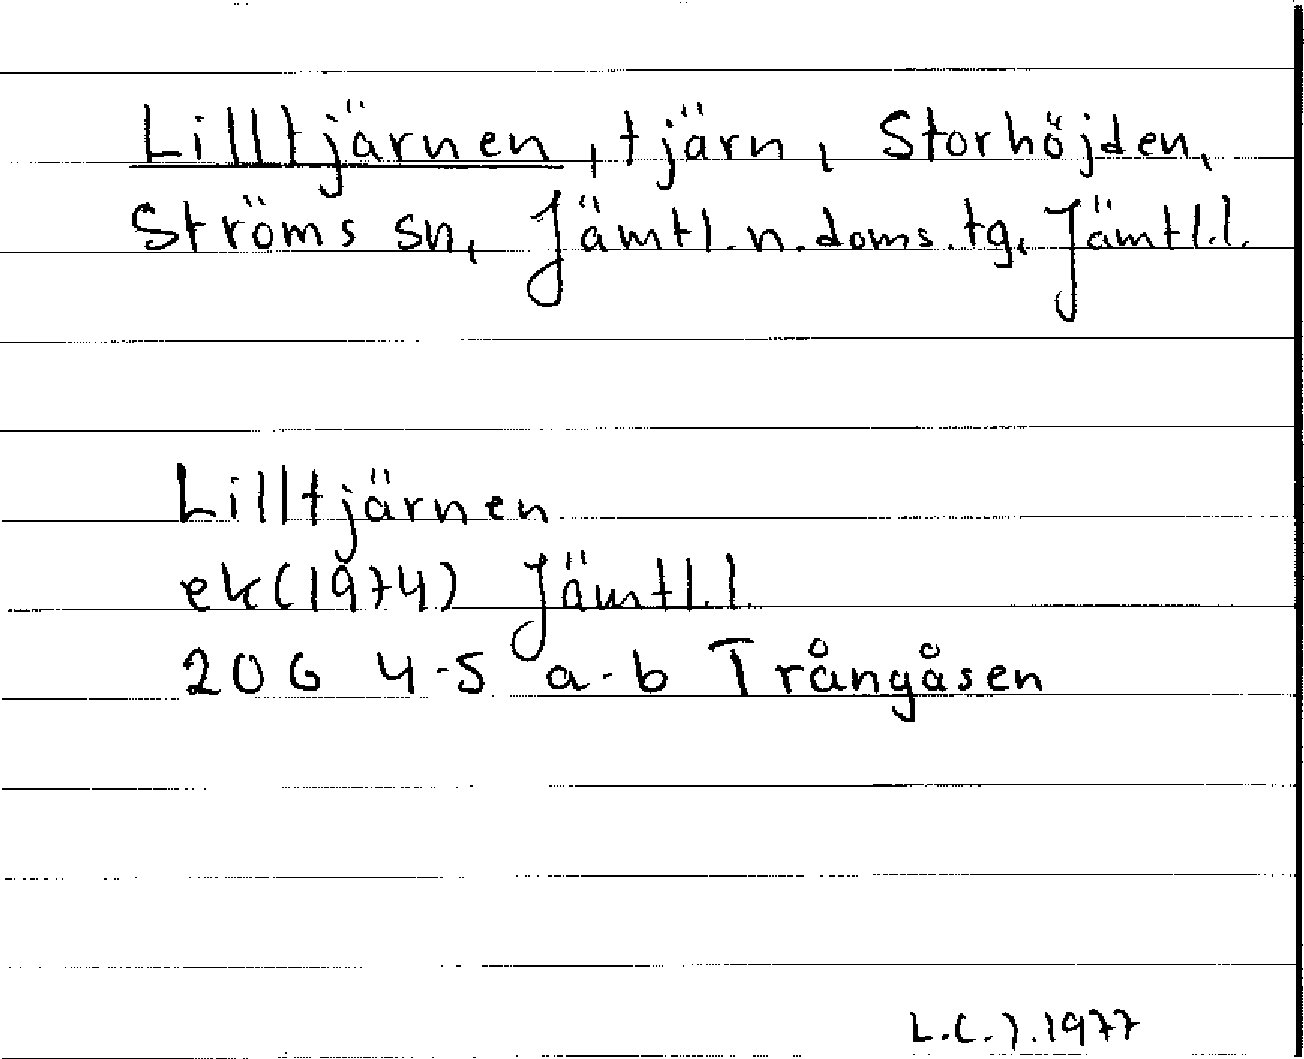 Lilltjärnen, tjärn, Storhöjden,
Ströms sn, Jämtl. n. doms. tg, Jämtl.l.
Lilltjärnen
ek (1974) Jämtl.l.
20G 4-5 a-b Trångåsen
1977